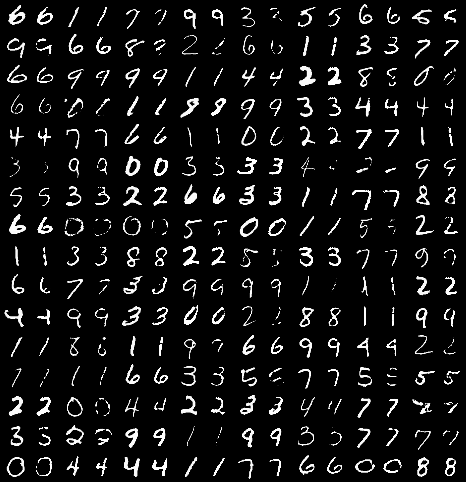 6 6 1 1 7 7 9 9 3 3 5 5 6 6 5 5
9 9 6 6 8 8 2 2 6 6 1 1 3 3 7 7
6 6 9 9 9 9 1 1 4 4 2 2 8 8 0 0
6 6 0 0 1 1 8 8 9 9 3 3 4 4 4 4
4 4 7 7 6 6 1 1 0 0 2 2 7 7 1 1
3 3 9 9 0 0 3 3 3 3 4 9 9
5 5 3 3 2 2 6 6 3 3 1 1 7 7 8 8
6 6 0 0 0 0 5 5 0 0 1 1 5 5 2 2
1 1 3 3 8 8 2 2 8 8 3 3 7 7 9 9
6 6 7 7 3 3 9 9 9 9 1 1 1 1 2 2
4 4 9 9 3 3 0 0 2 2 8 8 1 1 9 9
1 1 8 8 1 1 9 9 6 6 9 9 4 4 2 2
1 1 1 1 6 6 3 3 5 5 7 7 5 5 5 5
2 2 0 0 4 4 2 2 3 3 4 4 7 7
3 3 2 2 9 9 1 1 9 9 3 3 7 7 7 7
0 0 4 4 4 4 1 1 7 7 6 6 0 0 8 8